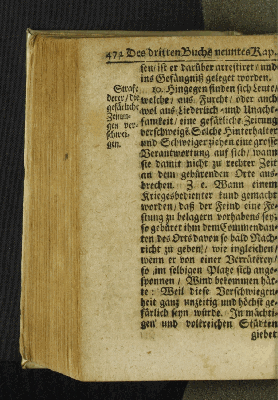 472 Des dritten Buchs neuntes Kap.
sen / ist er darüber arrestiret / und
ins Gefängniß geleget worden.
Strafe
derer / die
gefärliche
Zeitun-
gen ver-
schwei-
gen.
10. Hingegen finden sich Leute /
welche / aus Furcht / oder auch
wol aus Liederlich- und Unacht-
samkeit / eine gefärliche Zeitung
verschweigē. Solche Hinterhalter
und Schweiger ziehen eine grosse
Verantwortung auf sich / wann
sie damit nicht zu rechter Zeit
an dem gebürenden Orte aus-
brechen. Z. e. Wann einem
Kriegesbedienter kund gemacht
worden / daß der Feind eine Fe-
stung zu belagern vorhabens sey /
so gebüret ihm dem Commendan-
ten des Orts davon so bald Nach-
richt zu geben / wie ingleichen /
wenn er von einer Verrätérey /
so im selbigen Platze sich ange-
sponnen / Wind bekommen hät-
te: Weil diese Verschwiegen-
heit ganz unzeitig und höchst ge-
färlich seyn würde. In mächti-
gen und volkreichen Städten
giebet